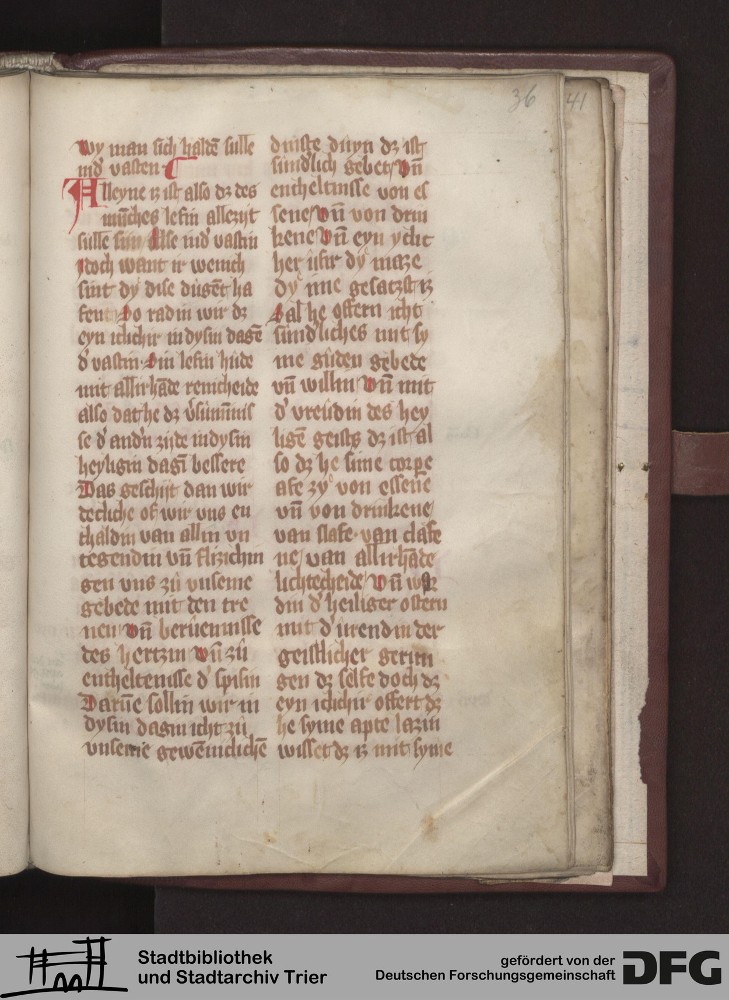 36
41
wy man sich haldē sulle
in d' vasten
Alleyne iz ist also dz des
mūches lesin allezijt
sulle sin Alse in d' vastin
Jdoch want ir wenich
sint dy dise dugēt ha
bent So radin wir dz
eyn iclichir in dysin dagē
d' vastin Sin lebin hude
mit allirhāde reincheide
also dat he dz v'sūmnis
se d' and'n zijde in dysin
heyligin dagī bessere
Das geschijt dan wir
decliche ob wir vns en
thaldin van allin vn
tegendin vn̄ flizichin
gen vns zů vnseme
gebede mit den tre
nen vn̄ berůennisse
des hertzin vn̄ zů
entheltenisse d' spisin
Darūe sollin wir in
dysin dagin icht zů
vnseme gewēniclichē
dinste důyn dz ist
sundlich gebet vn̄
entheltnisse von es
sene vn̄ von drin
kene vn̄ eyn yclic
her ubir dy maze
dy ime gesatzt iz
Sal he offern icht
sundliches mit sy
me gůden gebede
vn̄ willin vn̄ mit
d' vreudin des hey
ligē geistz dz ist al
so dz he sime corpe
abe zÿ von essene
vn̄ von drinkene
van slafe van clafe
ne van allirhāde
lichtecheide vn̄
din d' heiliger ostern
mit d' vrendin der
geistlicher gerin
gen dz selbe doch dz
eyn iclichir offert dz
he syme apte lazin
wisset dz iz mit syme
Stadtbibliothek
und Stadtarchiv Trier
gefördert von der
Deutschen Forschungsgemeinschaft
DFG